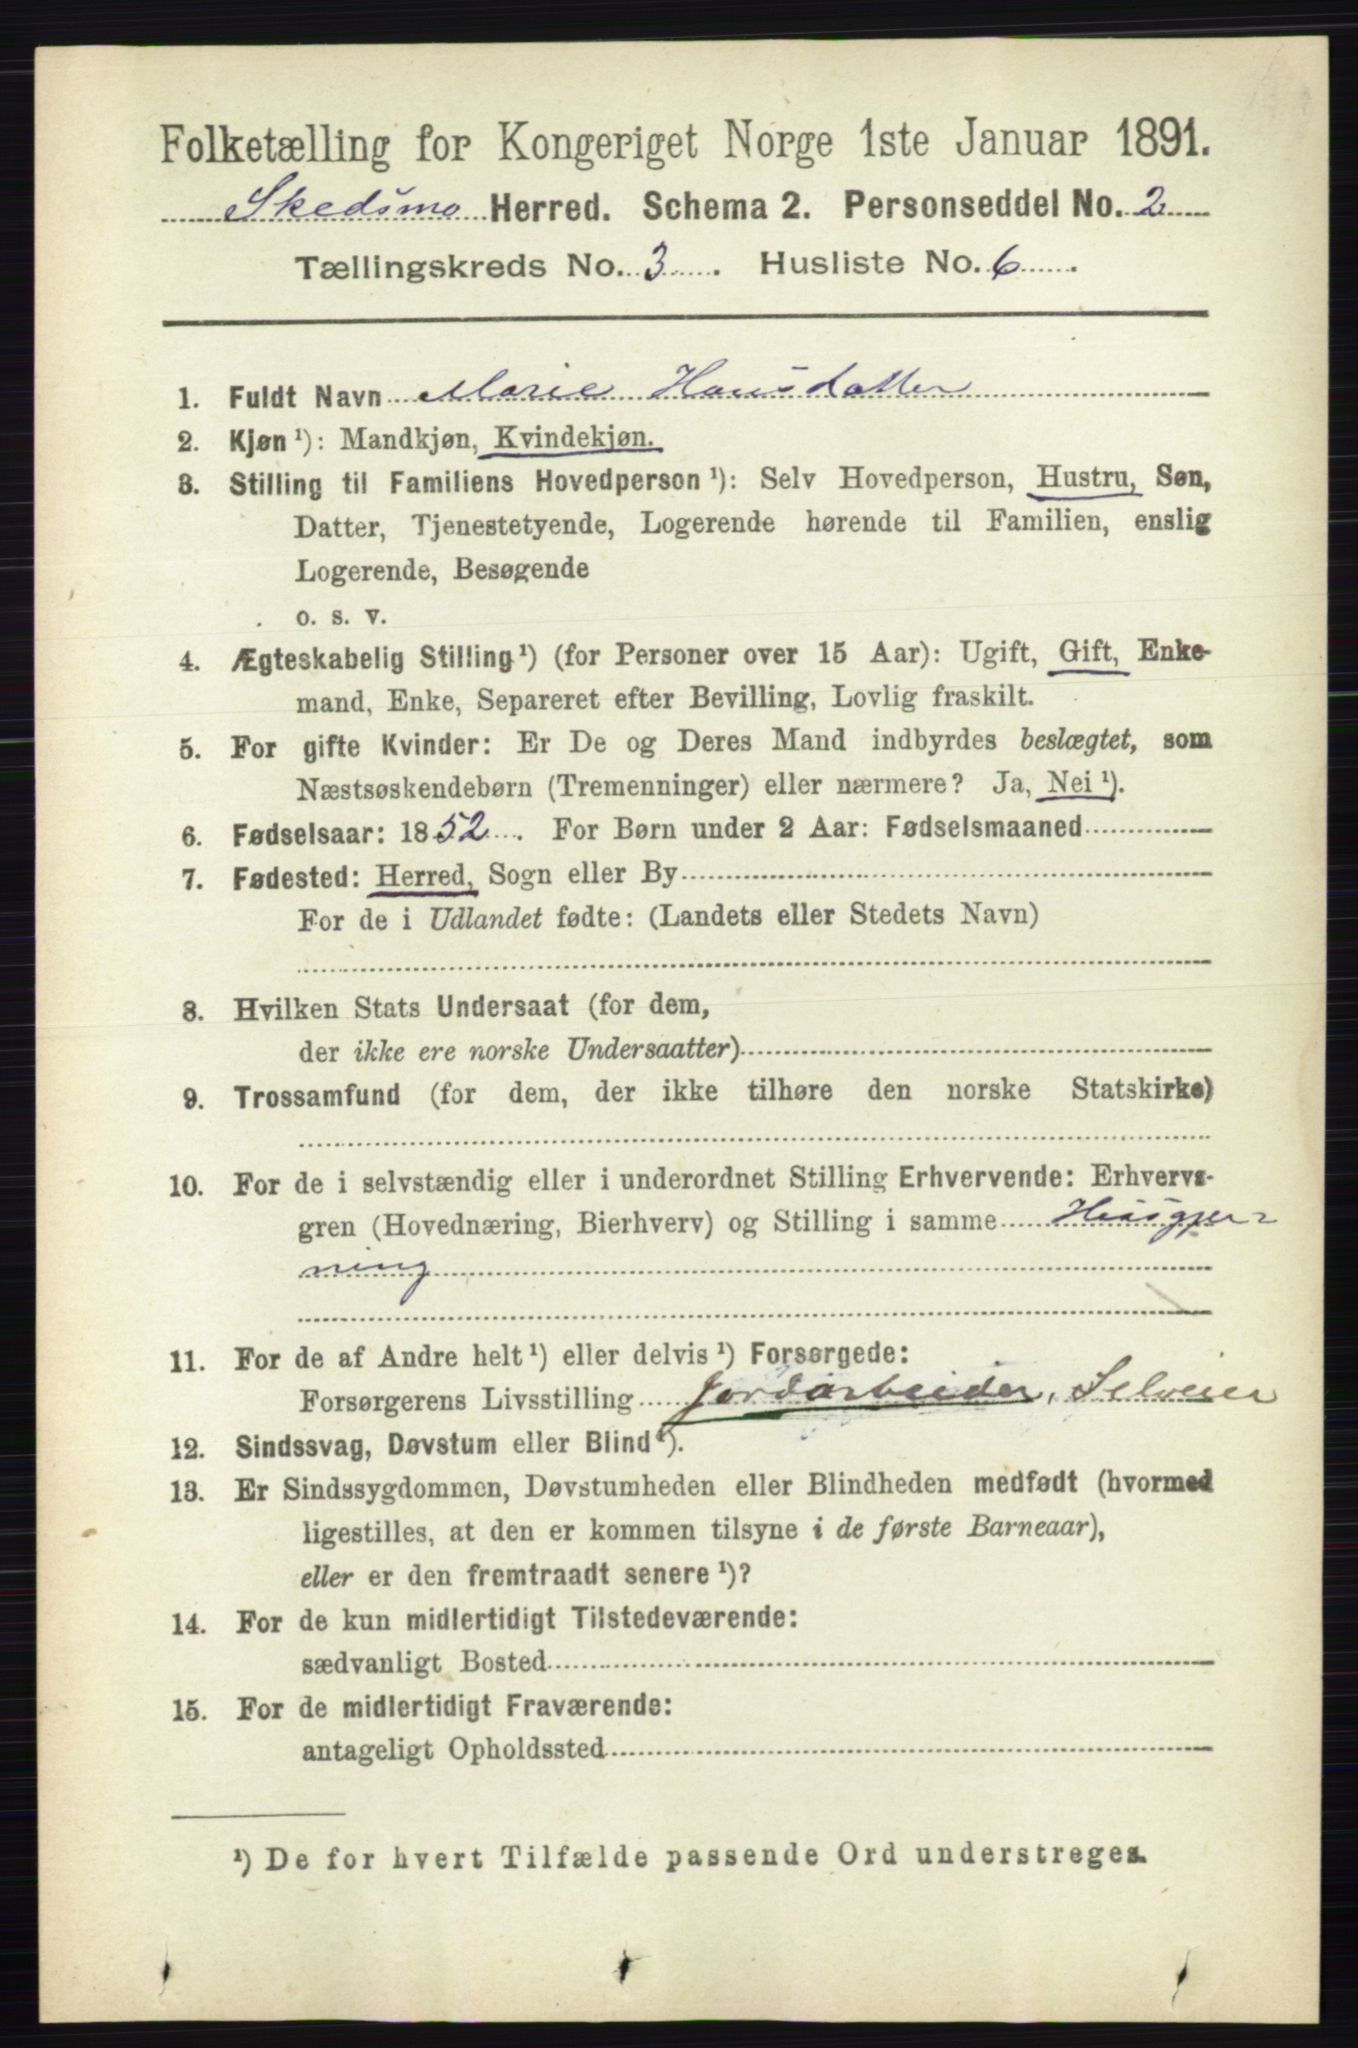 Folketælling for Kongeriget Norge 1ste Januar 1891.
Skedsmo Herred. Schema 2. Personseddel No. 2
Tællingskreds No. 3. Husliste No. 6.
1. Fuldt Navn Marie Hansdatter
2. Kjøn ¹): Mandkjøn, Kvindekjøn.
3. Stilling til Familiens Hovedperson ¹): Selv Hovedperson, Hustru, Søn,
Datter, Tjenestetyende, Logerende hørende til Familien, enslig
Logerende, Besøgende
o. s. v.
4. Ægteskabelig Stilling ¹) (for Personer over 15 Aar): Ugift, Gift, Enke-
mand, Enke, Separeret efter Bevilling, Lovlig fraskilt.
5. For gifte Kvinder: Er De og Deres Mand indbyrdes beslægtet, som
Næstsøskendebørn (Tremenninger) eller nærmere? Ja, Nei ¹).
6. Fødselsaar: 1852. For Børn under 2 Aar: Fødselsmaaned
7. Fødested: Herred, Sogn eller By
For de i Udlandet fødte: (Landets eller Stedets Navn)
8. Hvilken Stats Undersaat (for dem,
der ikke ere norske Undersaatter)
9. Trossamfund (for dem, der ikke tilhøre den norske Statskirke)
10. For de i selvstændig eller i underordnet Stilling Erhvervende: Erhvervs-
gren (Hovednæring, Bierhverv) og Stilling i samme Husgjer-
ning
11. For de af Andre helt ¹) eller delvis ¹) Forsørgede:
Forsørgerens Livsstilling Jordarbeider, Selveier
12. Sindssvag, Døvstum eller Blind ¹).
13. Er Sindssygdommen, Døvstumheden eller Blindheden medfødt (hvormed
ligestilles, at den er kommen tilsyne i de første Barneaar),
eller er den fremtraadt senere ¹)?
14. For de kun midlertidigt Tilstedeværende:
sædvanligt Bosted
15. For de midlertidigt Fraværende:
antageligt Opholdssted
¹) De for hvert Tilfælde passende Ord understreges.